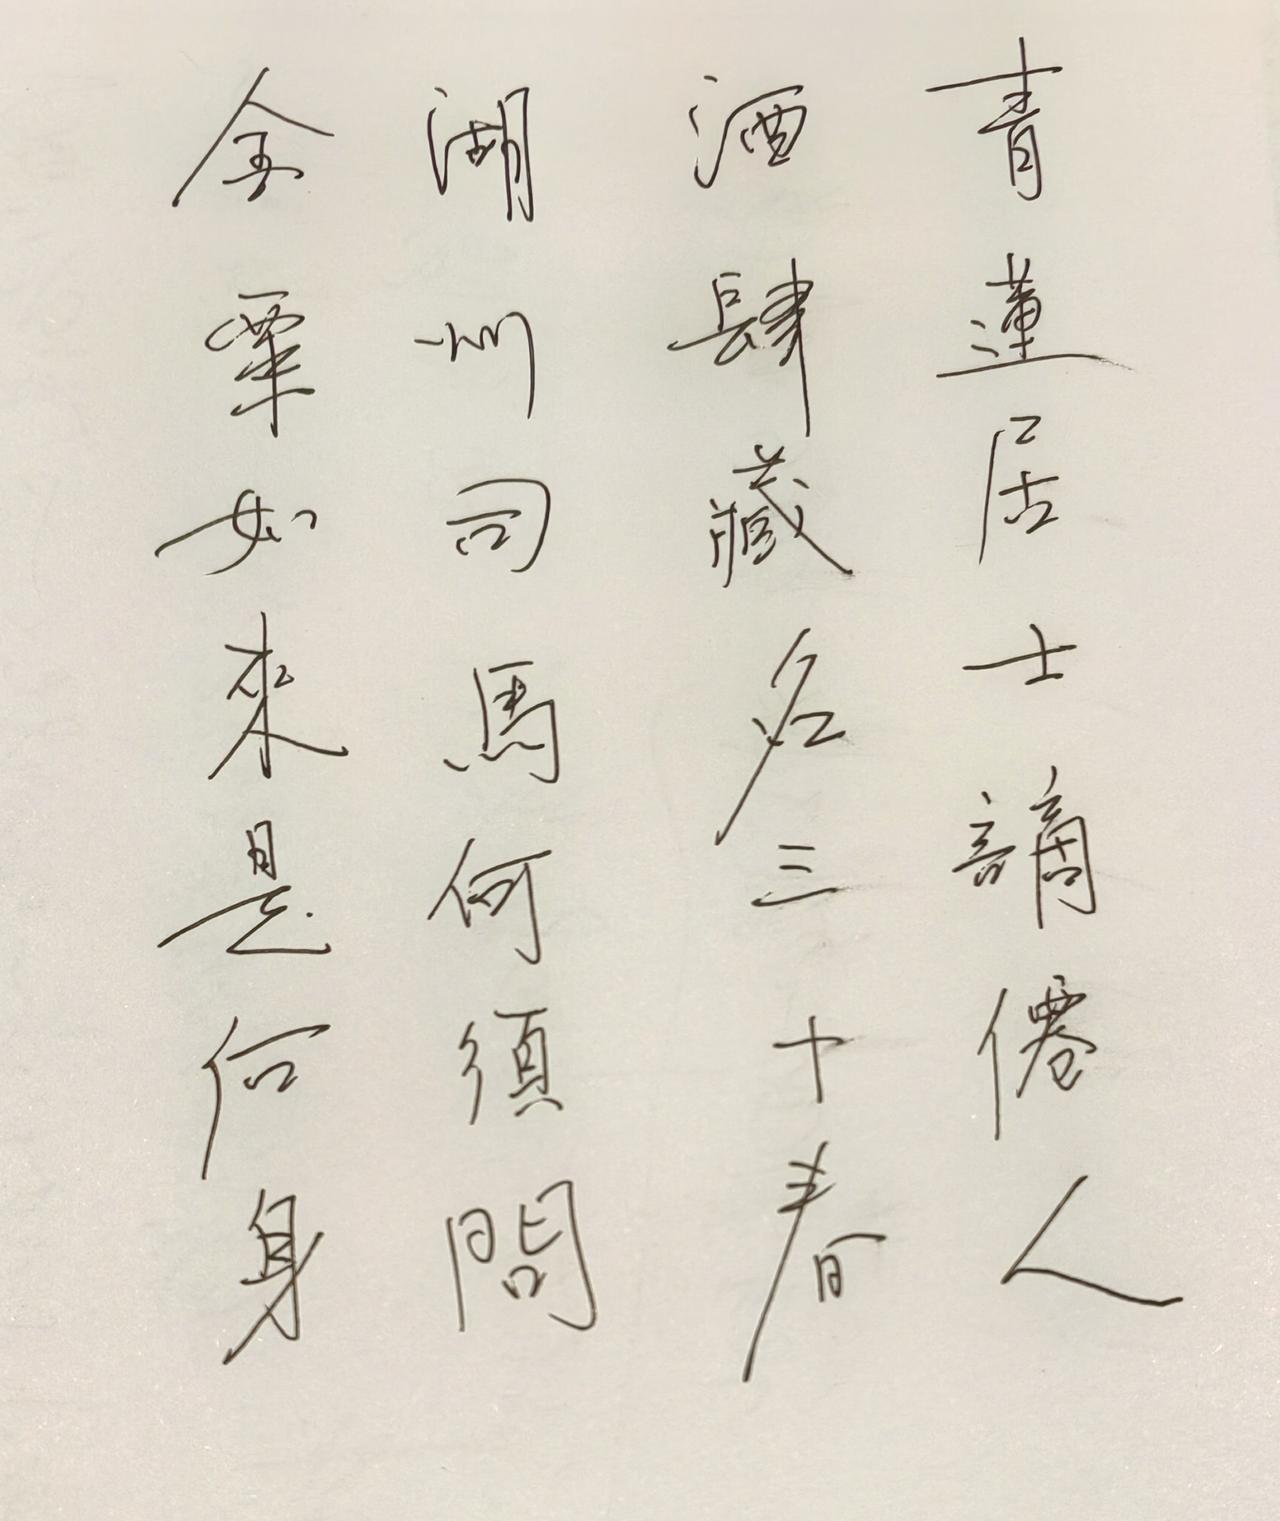 青蓮居士謫僊人
酒肆藏名三十春
湖州司馬何須問
金粟如來是何身